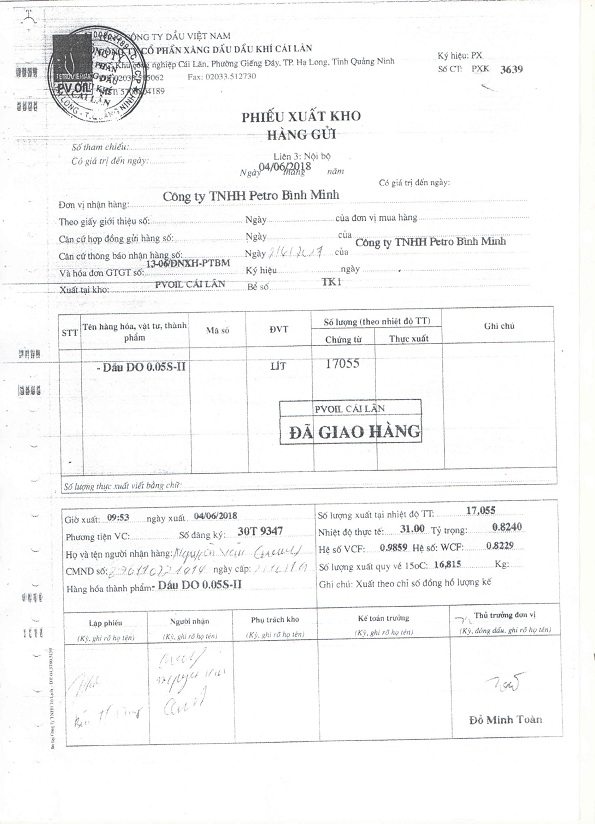 CÔNG TY DẦU VIỆT NAM
CÔNG TY CỔ PHẦN XĂNG DẦU DẦU KHÍ CÁI LÂN
Khu công nghiệp Cái Lân, Phường Giếng Đáy, TP. Hạ Long, Tỉnh Quảng Ninh
Fax: 02033.512730
PETROVIETNAM
PV OIL
CÁI LÂN
Ký hiệu: PX
Số CT: PXK 3639
PHIẾU XUẤT KHO
HÀNG GỬI
Liên 3: Nội bộ
Số tham chiếu:
Có giá trị đến ngày:
Ngày 04/06/2018 tháng năm
Có giá trị đến ngày:
Đơn vị nhận hàng: Công ty TNHH Petro Bình Minh
Theo giấy giới thiệu số: Ngày của đơn vị mua hàng
Căn cứ hợp đồng gửi hàng số: Ngày của Công ty TNHH Petro Bình Minh
Căn cứ thông báo nhận hàng số: Ngày của
13-06/ĐNXH-PTBM
Và hóa đơn GTGT số: Ký hiệu ngày
Xuất tại kho: PVOIL CÁI LÂN Bể số TK1
STT Tên hàng hóa, vật tư, thành phẩm Mã số ĐVT Số lượng (theo nhiệt độ TT) Ghi chú
Chứng từ Thực xuất
- Dầu DO 0.05S-II LÍT 17055
PVOIL CÁI LÂN
ĐÃ GIAO HÀNG
Số lượng thực xuất viết bằng chữ:
Giờ xuất: 09:53 ngày xuất 04/06/2018
Phương tiện VC: Số đăng ký: 30T 9347
Họ và tên người nhận hàng: Nguyễn Văn
CMND số: ngày cấp:
Hàng hóa thành phẩm: - Dầu DO 0.05S-II
Số lượng xuất tại nhiệt độ TT: 17,055
Nhiệt độ thực tế: 31.00 Tỷ trọng: 0.8240
Hệ số VCF: 0.9859 Hệ số: WCF: 0.8229
Số lượng xuất quy về 15oC: 16,815 Kg:
Ghi chú: Xuất theo chỉ số đồng hồ lượng kế
Lập phiếu Người nhận Phụ trách kho Kế toán trưởng Thủ trưởng đơn vị
(Ký, ghi rõ họ tên) (Ký, ghi rõ họ tên) (Ký, ghi rõ họ tên) (Ký, ghi rõ họ tên) (Ký, đóng dấu, ghi rõ họ tên)
Đỗ Minh Toàn